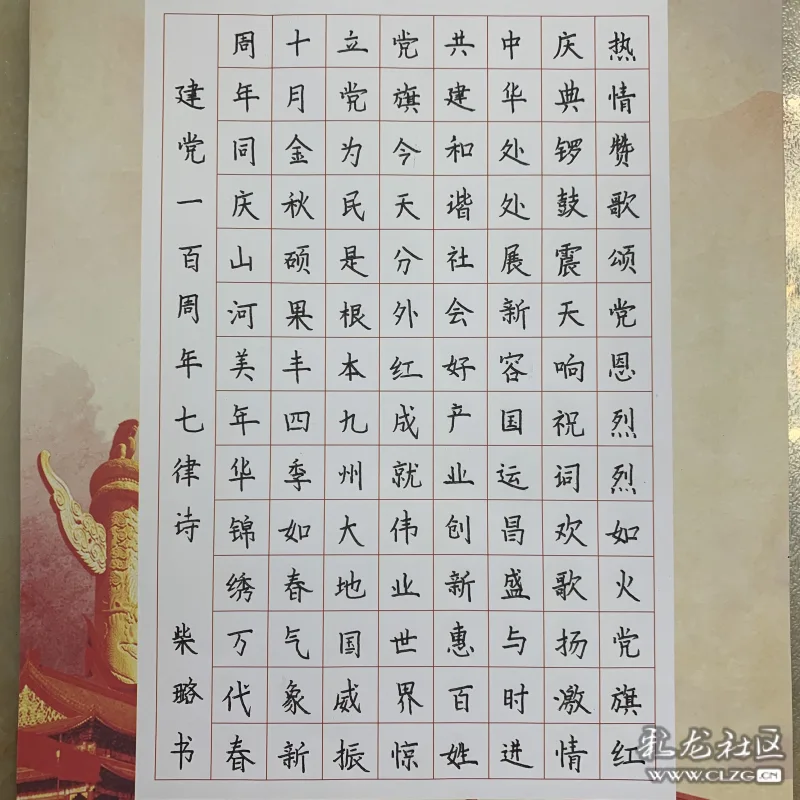 热情赞歌颂党恩烈烈如火党旗红
庆典锣鼓震天响祝词欢歌扬激情
中华处处展新容国运昌盛与时进
共建和谐社会好产业创新惠百姓
党旗今天分外红成就伟业世界惊
立党为民是根本九州大地国威振
十月金秋硕果丰四季如春气象新
周年同庆山河美年华锦绣万代春
建党一百周年七律诗 柴略书
乳龙社区
WWW.CLZG.CN